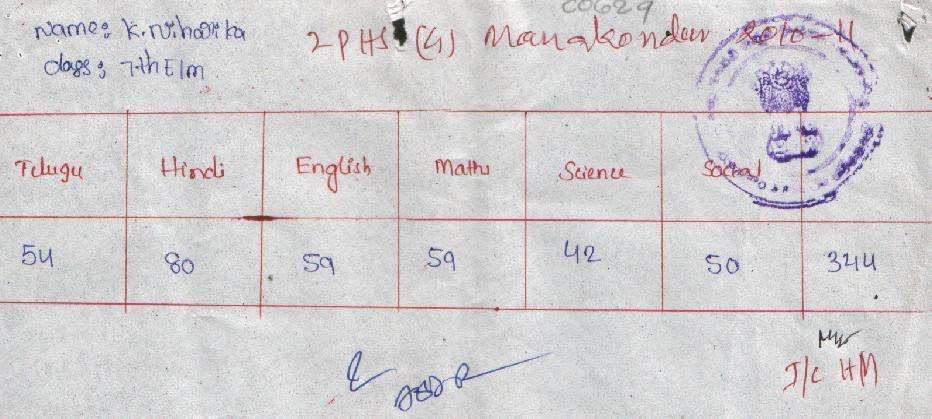 00629
Name: K. Niharika
2PHS (G) Manakondur 2010-11
class: 7th E/m
Telugu Hindi English Maths Science Social
54 80 59 59 42 50 344
I/c HM